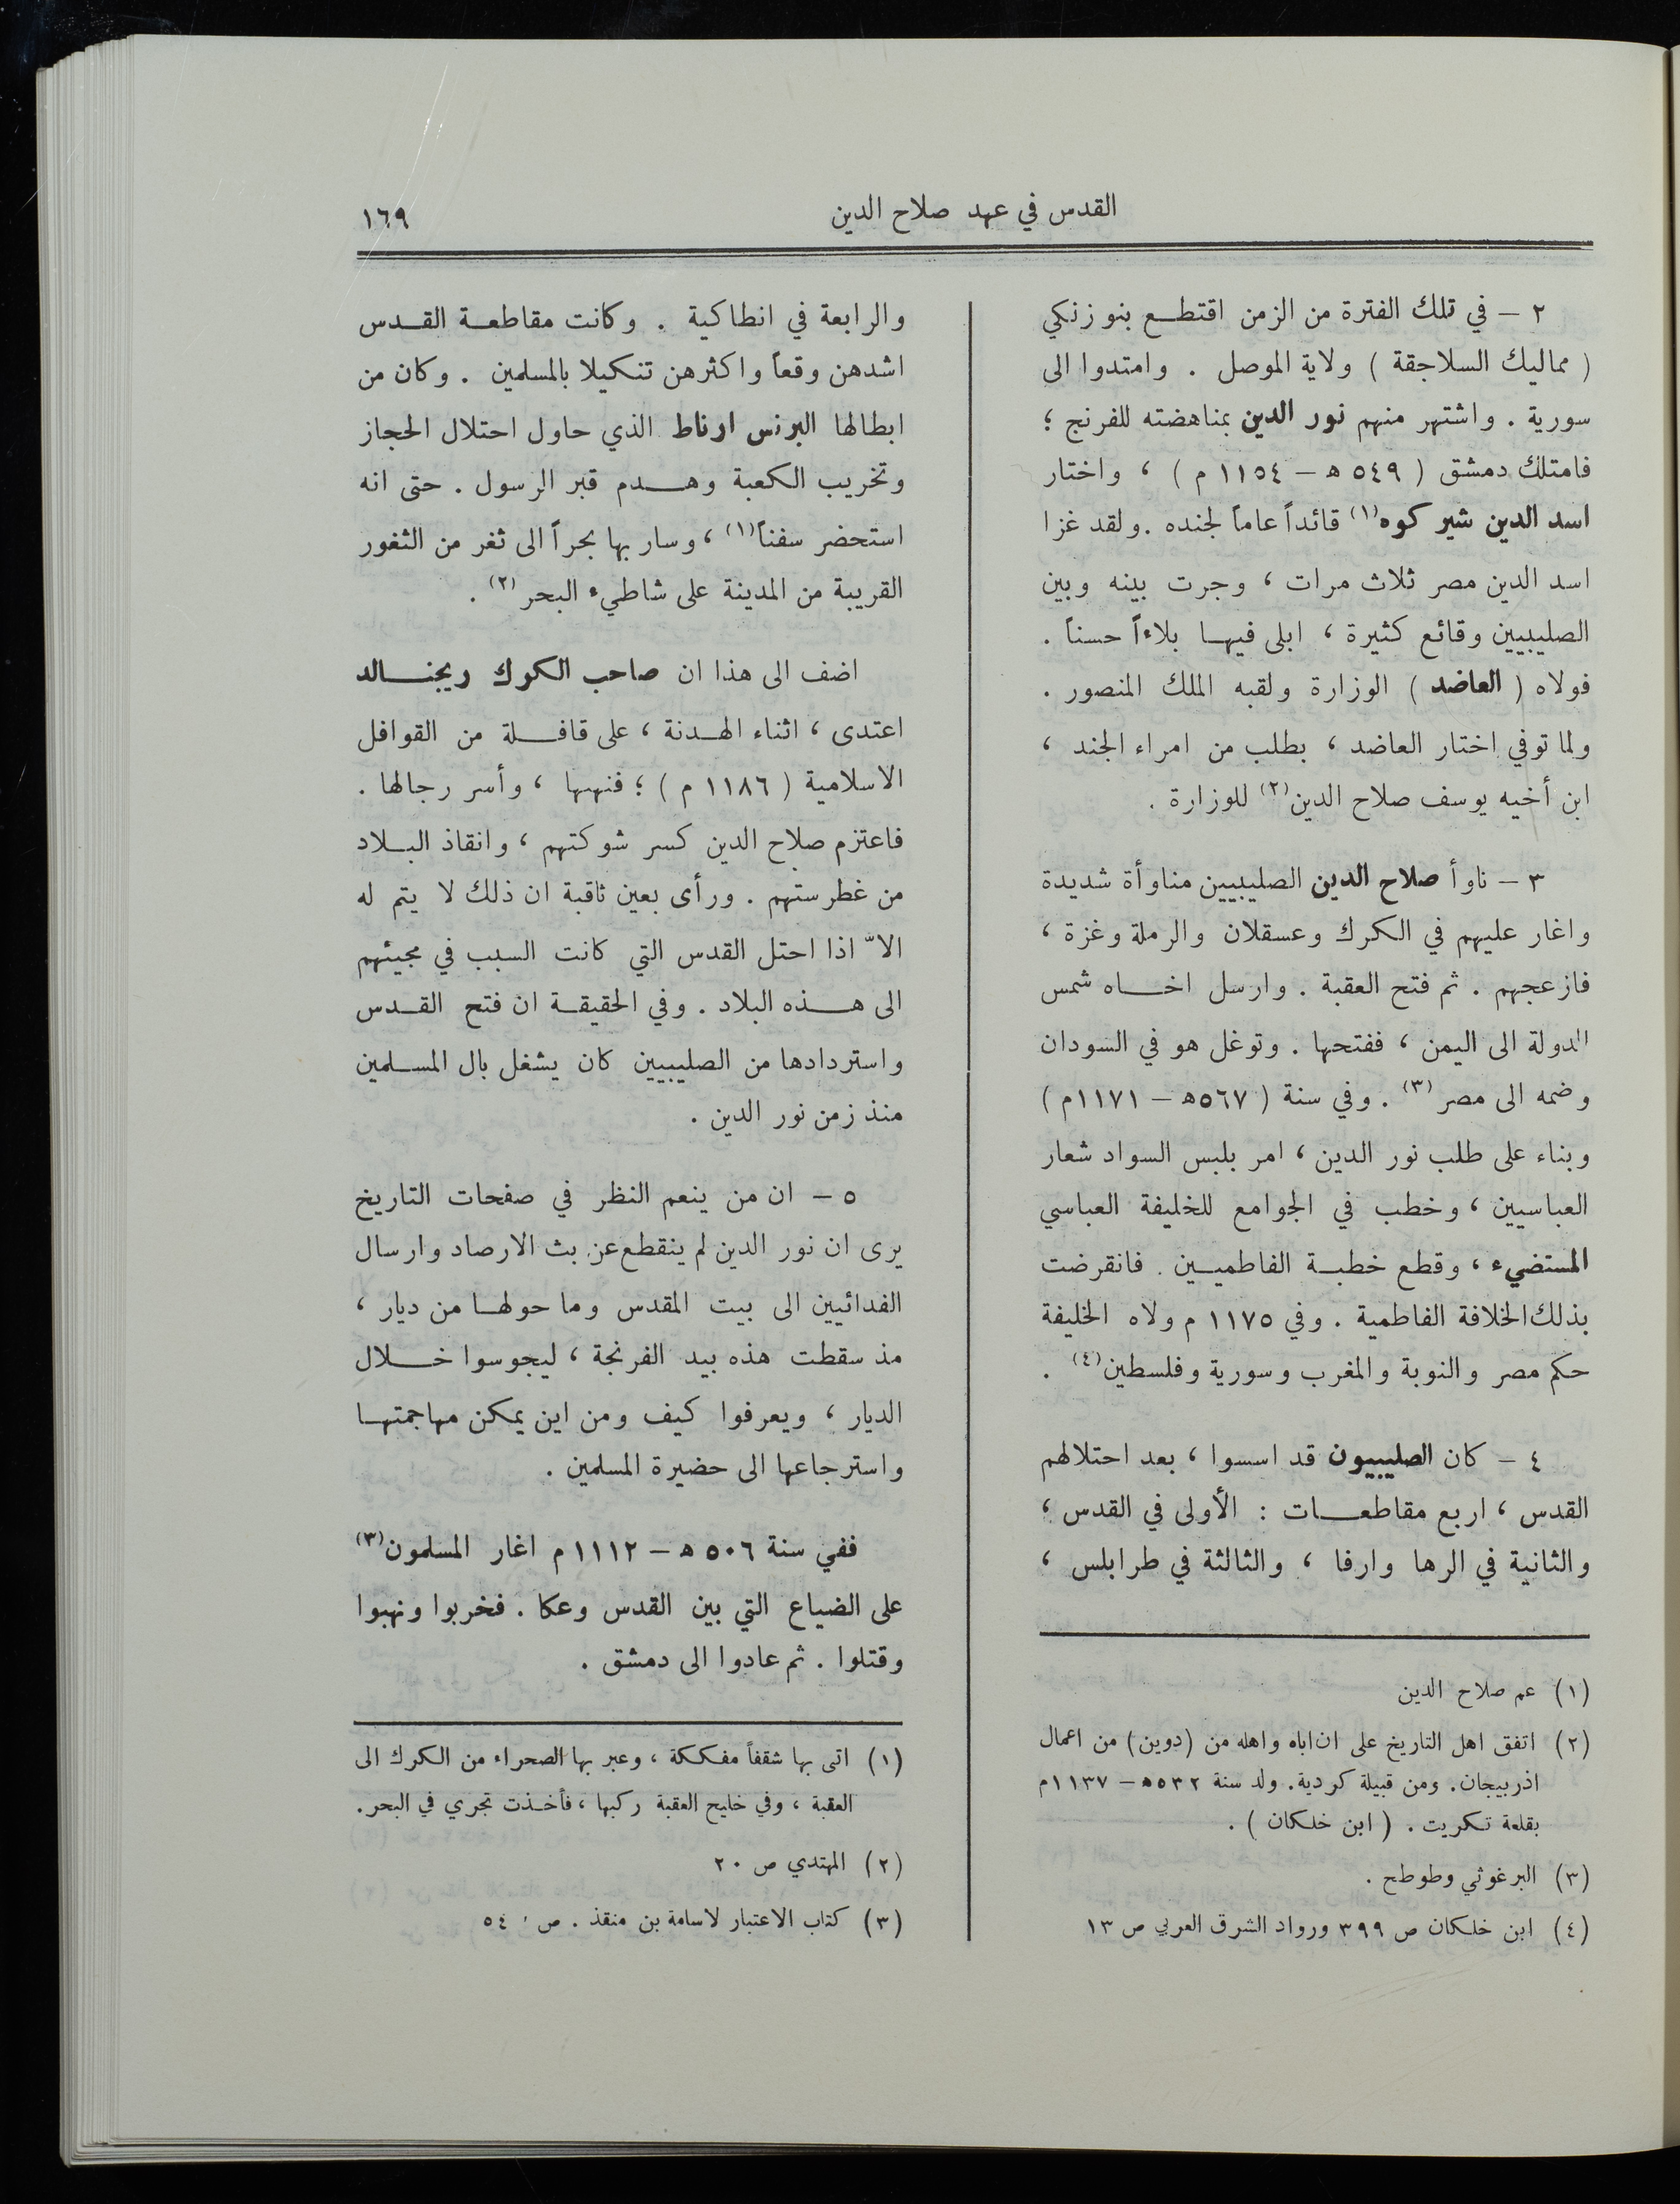 القدس في عهد صلاح الدين
١٦٩
٢ – في تلك الفترة من الزمن اقتطع بنو زنكي
( مماليك السلاجقة ) ولاية الموصل . وامتدوا الى
سورية . واشتهر منهم نور الدين بمناهضته للفرنج ؛
فامتلك دمشق ( ٥٤٩ ه – ١١٥٤ م ) ، واختار
اسد الدين شير كوه(١) قائداً عاماً لجنده . ولقد غزا
اسد الدين مصر ثلاث مرات ، وجرت بينه وبين
الصليبيين وقائع كثيرة ، ابلى فيها بلاءاً حسناً .
فولاه ( العاضد ) الوزارة ولقبه الملك المنصور .
ولما توفي اختار العاضد ، بطلب من امراء الجند ،
ابن أخيه يوسف صلاح الدين(٢) للوزارة .
٣ – ناوأ صلاح الدين الصليبيين مناوأة شديدة
واغار عليهم في الكرك وعسقلان والرملة وغزة ،
فازعجهم . ثم فتح العقبة . وارسل اخاه شمس
الدولة الى اليمن ، ففتحها . وتوغل هو في السودان
وضمه الى مصر (٣) . وفي سنة ( ٥٦٧ه – ١١٧١م )
وبناء على طلب نور الدين ، امر بلبس السواد شعار
العباسيين ، وخطب في الجوامع للخليفة العباسي
المستضيء ، وقطع خطبة الفاطميين . فانقرضت
بذلك الخلافة الفاطمية . وفي ١١٧٥ م ولاه الخليفة
حكم مصر والنوبة والمغرب وسورية وفلسطين(٤) .
٤ – كان الصليبيون قد اسسوا ، بعد احتلالهم
القدس ، اربع مقاطعات : الأولى في القدس ،
والثانية في الرها وارفا ، والثالثة في طرابلس ،
(١) عم صلاح الدين
(٢) اتفق اهل التاريخ على ان اباه واهله من (دوين) من اعمال
اذربيجان. ومن قبيلة كردية. ولد سنة ٥٣٢ه – ١١٣٧م
بقلعة تكريت . ( ابن خلكان ) .
(٣) البرغوثي وطوطح .
(٤) ابن خلكان ص ٣٩٩ ورواد الشرق العربي ص ١٣
والرابعة في انطاكية . وكانت مقاطعة القدس
اشدهن وقعاً واكثرهن تنكيلا بالمسلمين . وكان من
ابطالها البرنس ارناط الذي حاول احتلال الحجاز
وتخريب الكعبة وهدم قبر الرسول . حتى انه
استحضر سفناً(١) ، وسار بها بحراً الى ثغر من الثغور
القريبة من المدينة على شاطيء البحر (٢) .
اضف الى هذا ان صاحب الكرك ريجنالد
اعتدى ، اثناء الهدنة ، على قافلة من القوافل
الاسلامية ( ١١٨٦ م ) ؛ فنهبها ، وأسر رجالها .
فاعتزم صلاح الدين كسر شوكتهم ، وانقاذ البلاد
من غطرستهم . ورأى بعين ثاقبة ان ذلك لا يتم له
الاّ اذا احتل القدس التي كانت السبب في مجيئهم
الى هذه البلاد . وفي الحقيقة ان فتح القدس
واستردادها من الصليبيين كان يشغل بال المسلمين
منذ زمن نور الدين .
٥ – ان من ينعم النظر في صفحات التاريخ
يرى ان نور الدين لم ينقطع عن بث الارصاد وارسال
الفدائيين الى بيت المقدس وما حولها من ديار ،
مذ سقطت هذه بيد الفرنجة ، ليجوسوا خلال
الديار ، ويعرفوا كيف ومن اين يمكن مهاجمتها
واسترجاعها الى حضيرة المسلمين .
ففي سنة ٥٠٦ ه – ١١١٢ م اغار المسلمون(٣)
على الضياع التي بين القدس وعكا . فخربوا ونهبوا
وقتلوا . ثم عادوا الى دمشق .
(١) اتى بها شقفاً مفككة ، وعبر بها الصحراء من الكرك الى
العقبة ، وفي خليج العقبة ركبها ، فأخذت تجري في البحر.
(٢) المهتدي ص ٢٠
(٣) كتاب الاعتبار لاسامة بن منقذ . ص ٥٤